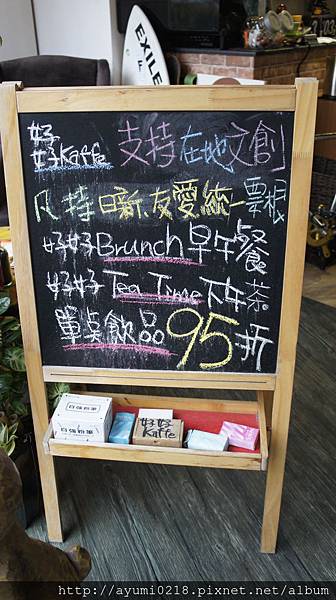 EXILE
好好Kaffe 支持在地文創
凡持暖新友愛統一票根
好好Brunch 早午餐
好好Tea Time 下午茶
單點飲品95折
好好Kaffe
http://ayumi0218.pixnet.net/album